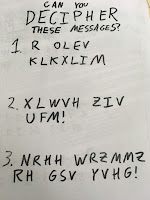 CAN YOU
DECIPHER
THESE MESSAGES?
1. R OLEV
KLKXLIM
2. XLWVH ZIV
UFM!
3. NRHH WRZMMZ
RH GSV YVHG!